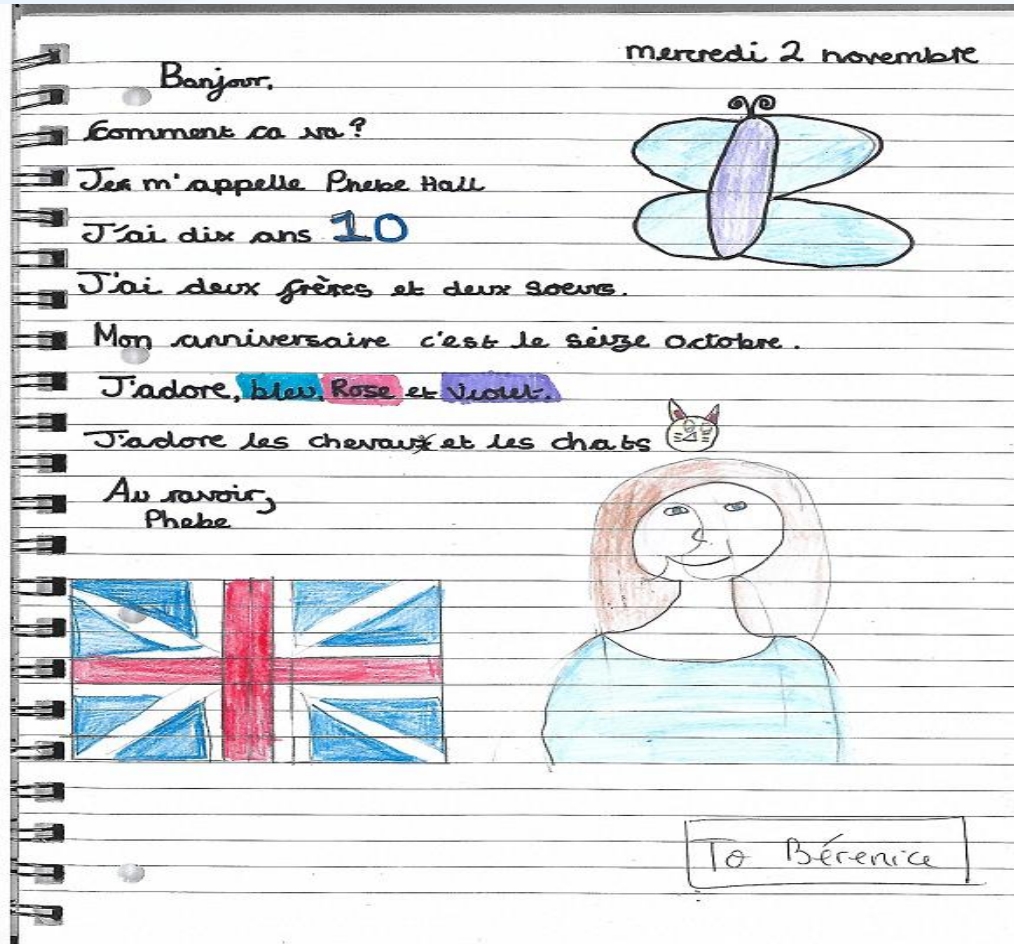 mercredi 2 novembre
Bonjour,
Comment ca va?
Je m'appelle Phebe Hall
J'ai dix ans 10
J'ai deux frères et deux soeurs.
Mon anniversaire c'est le seize octobre.
J'adore, bleu, Rose et Violet.
J'adore les chevaux et les chats
Au ravoir,
Phebe
To Bérenice